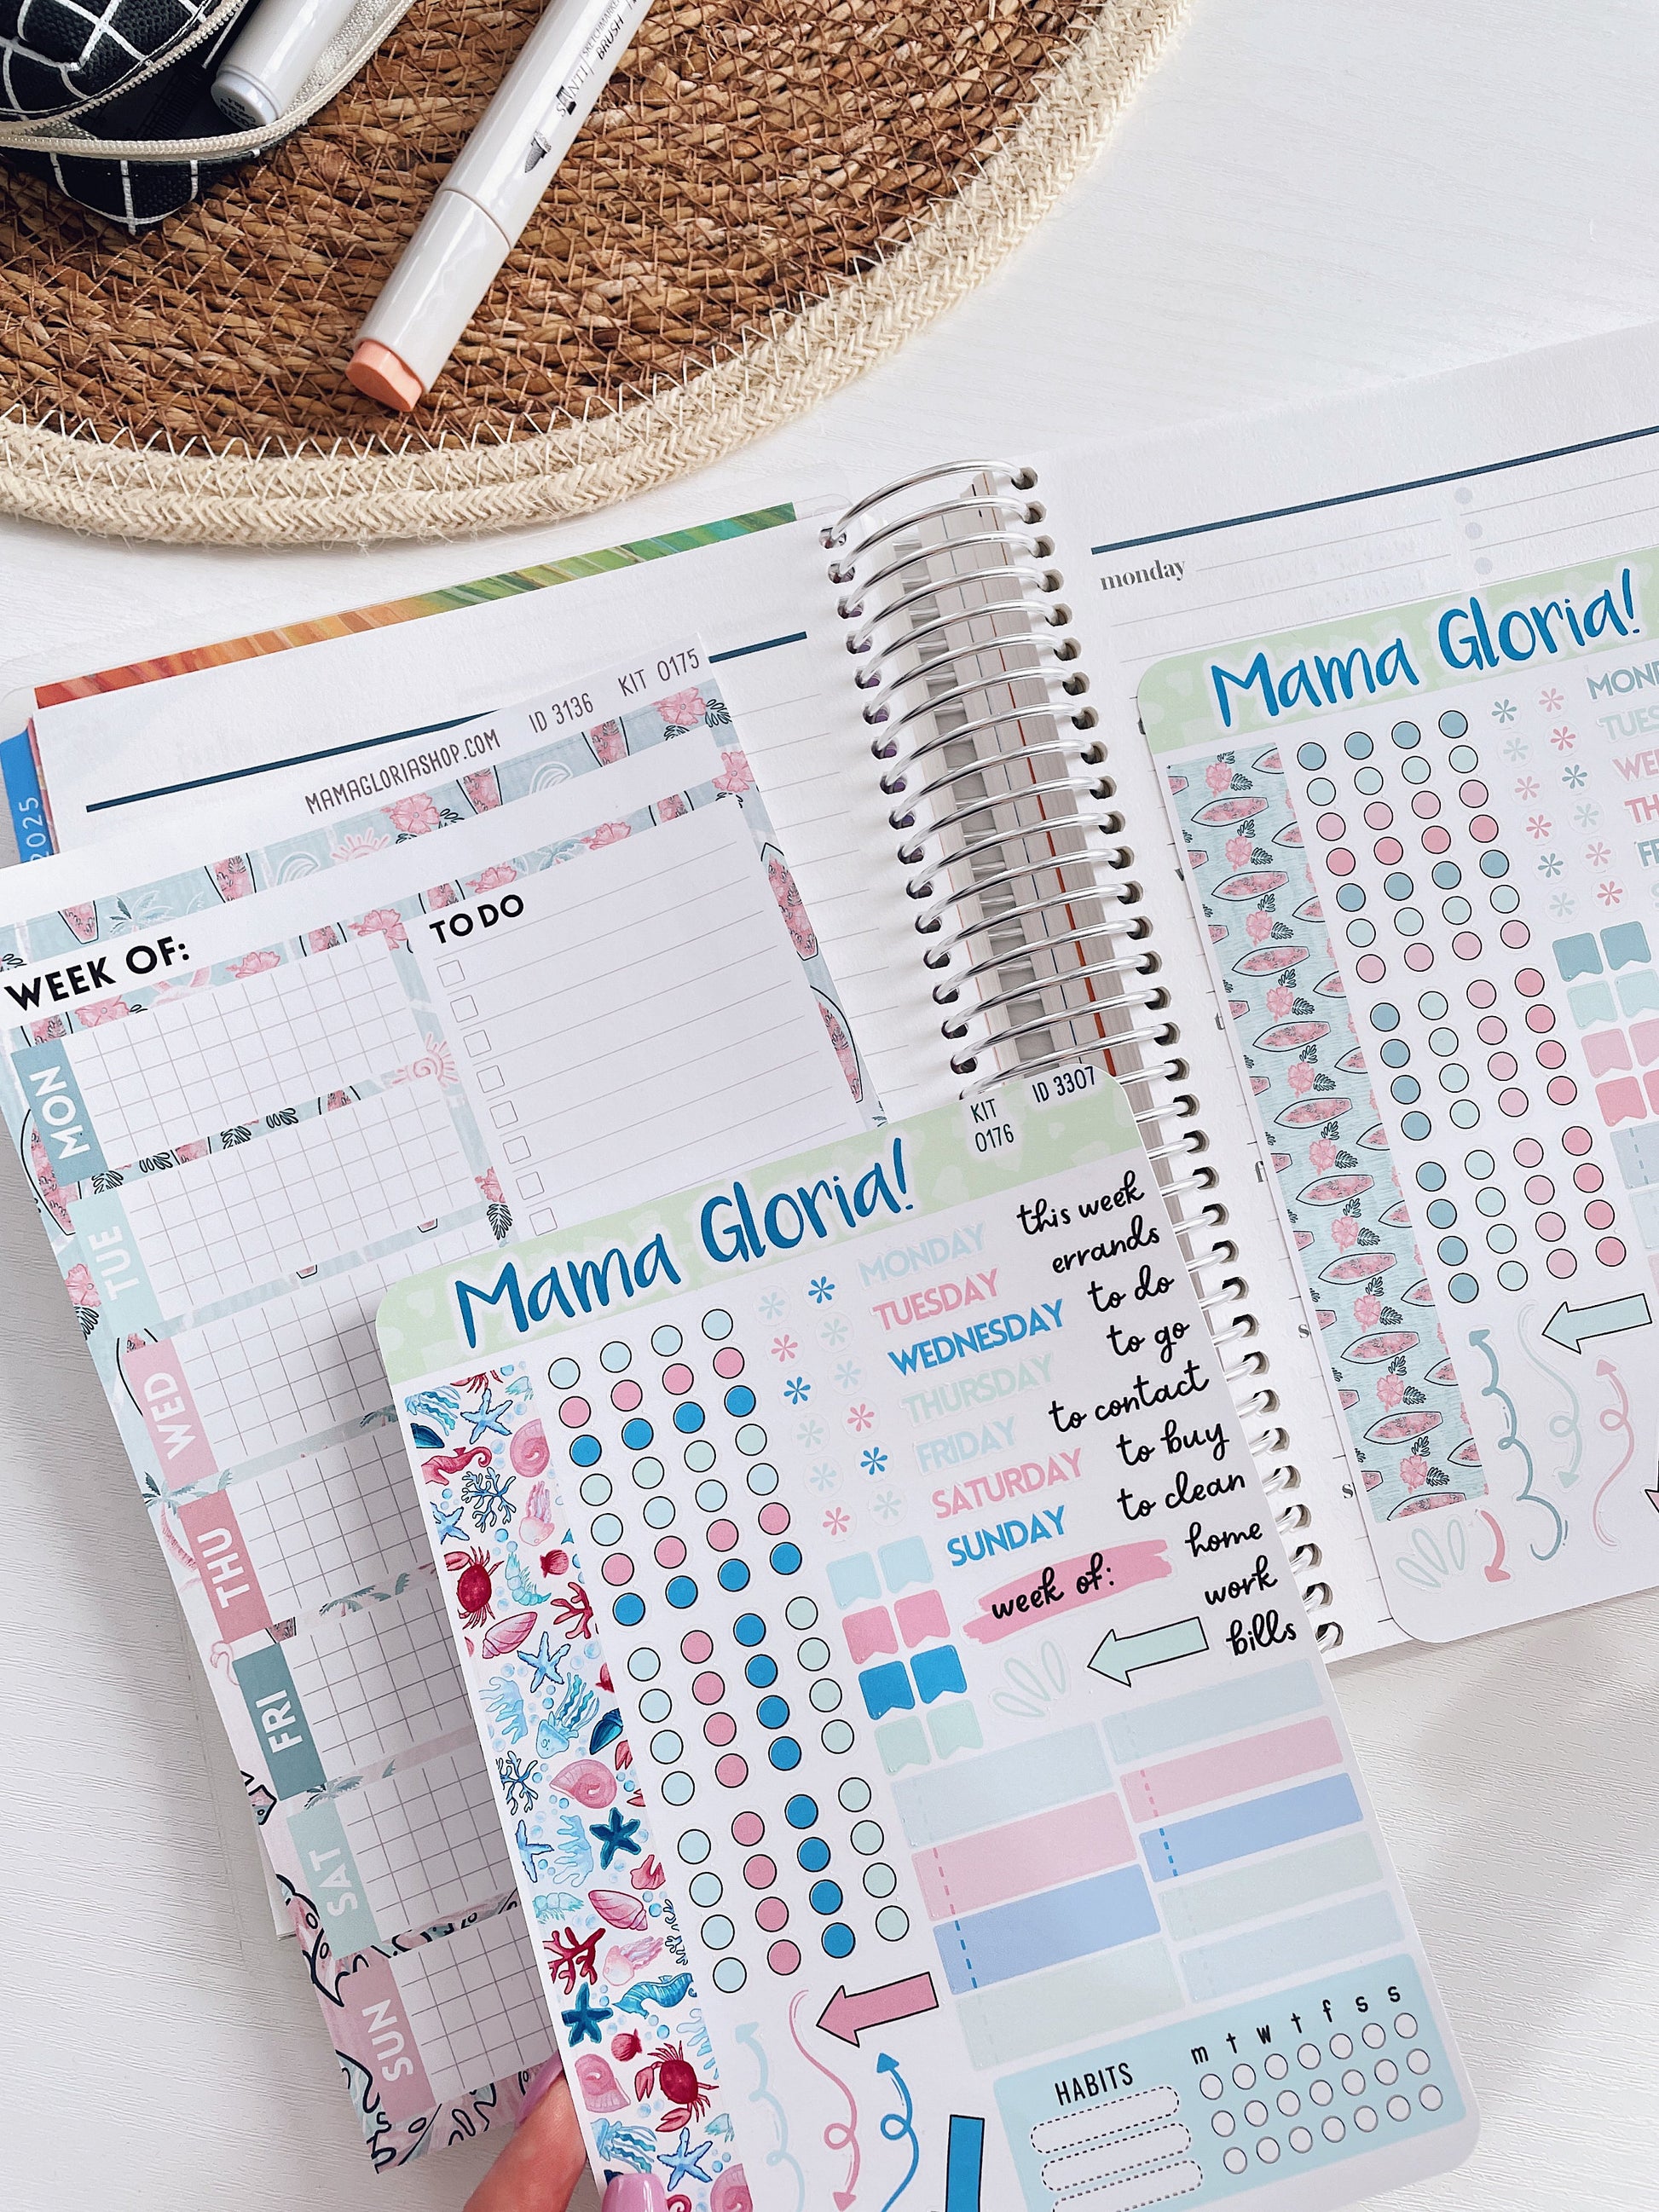 SANTI
BRUSH
monday
2025
MAMAGLORIASHOP.COM ID 3136 KIT 0175
WEEK OF:
TO DO
MON
TUE
WED
THU
FRI
SAT
SUN
Mama Gloria!
KIT 0176
ID 3307
MONDAY
TUESDAY
WEDNESDAY
THURSDAY
FRIDAY
SATURDAY
SUNDAY
week of:
this week
errands
to do
to go
to contact
to buy
to clean
home
work
bills
HABITS
m t w t f s s
Mama Gloria!